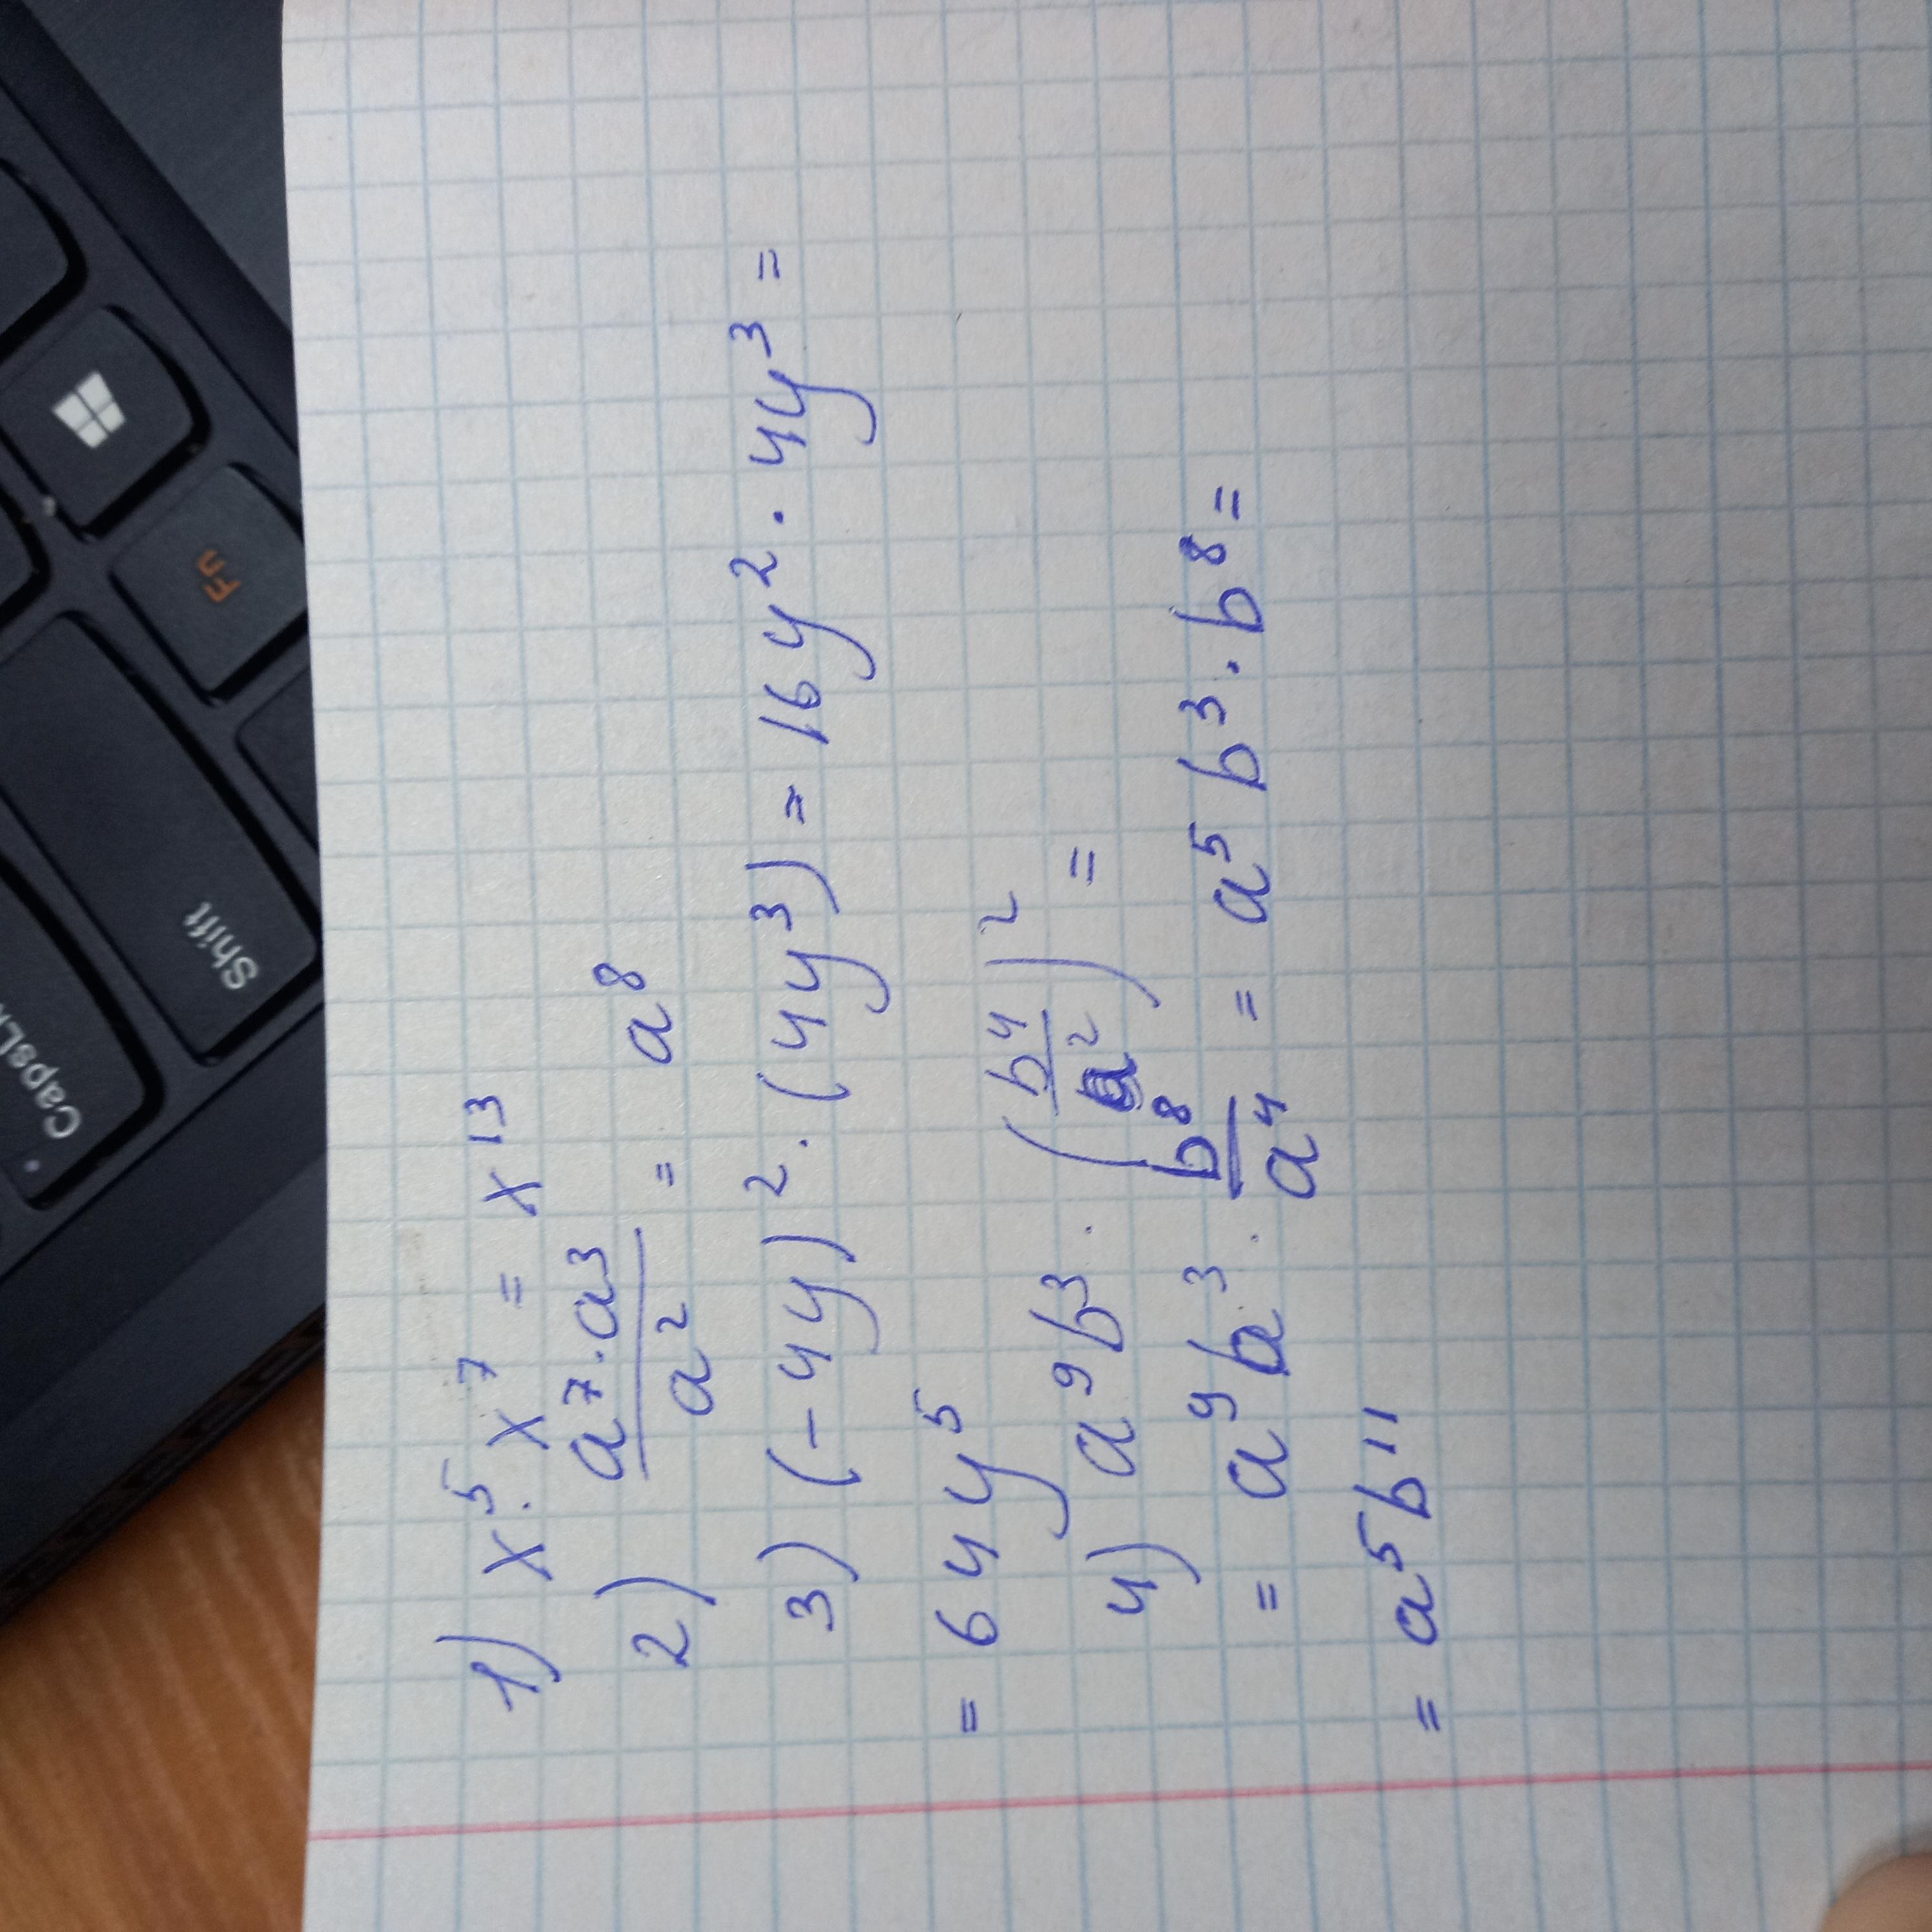 1) x⁵ · x⁷ = x¹³
2) (a⁷ · a³)/a² = a⁸
3) (-4y)² · (4y³) = 16y² · 4y³ =
= 64y⁵
4) a⁹b³ · (b⁴/a²)² =
= a⁹b³ · b⁸/a⁴ = a⁵b³ · b⁸ =
= a⁵b¹¹
CapsL
Shift
Fn